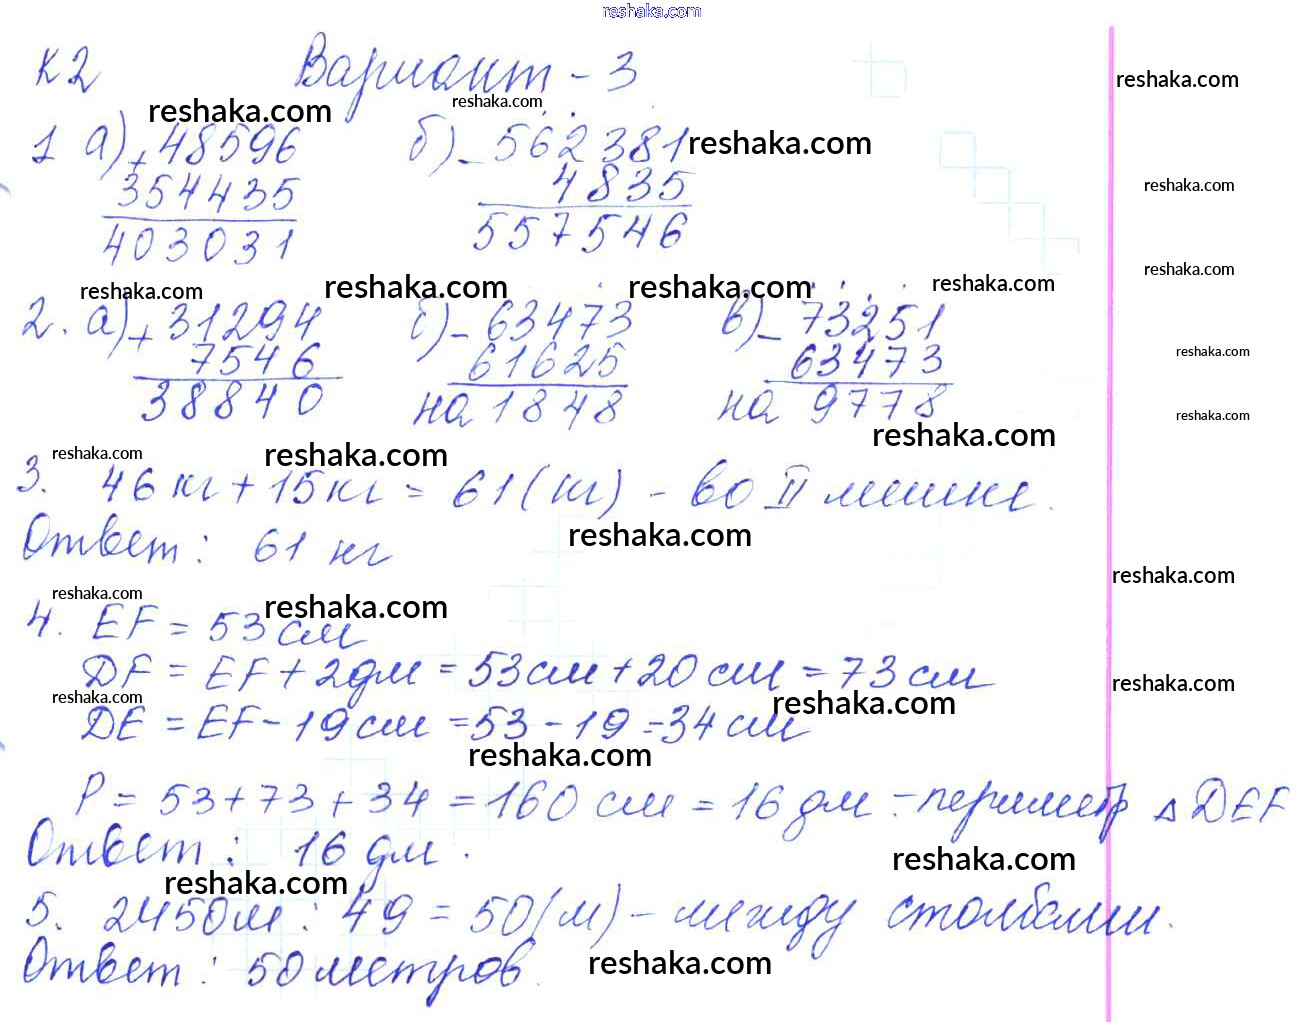 reshaka.com
К2 Вариант - 3
reshaka.com reshaka.com reshaka.com
1 а) + 48596 б) - 562381 reshaka.com
354435 4835 reshaka.com
403031 557546
reshaka.com reshaka.com reshaka.com reshaka.com reshaka.com
2. а) + 31294 б) - 63473 в) - 73251
7546 61625 63473 reshaka.com
38840 на 1848 на 9778
reshaka.com reshaka.com reshaka.com reshaka.com
3. 46 кг + 15 кг = 61 (кг) - во II мешке.
Ответ: 61 кг reshaka.com
reshaka.com reshaka.com reshaka.com
4. EF = 53 см
DF = EF + 2дм = 53см + 20 см = 73 см
reshaka.com reshaka.com reshaka.com
DE = EF - 19 см = 53 - 19 = 34 см
reshaka.com
P = 53 + 73 + 34 = 160 см = 16 дм - периметр Δ DEF
Ответ: 16 дм.
reshaka.com reshaka.com
5. 2450м : 49 = 50 (м) - между столбами.
Ответ: 50 метров. reshaka.com